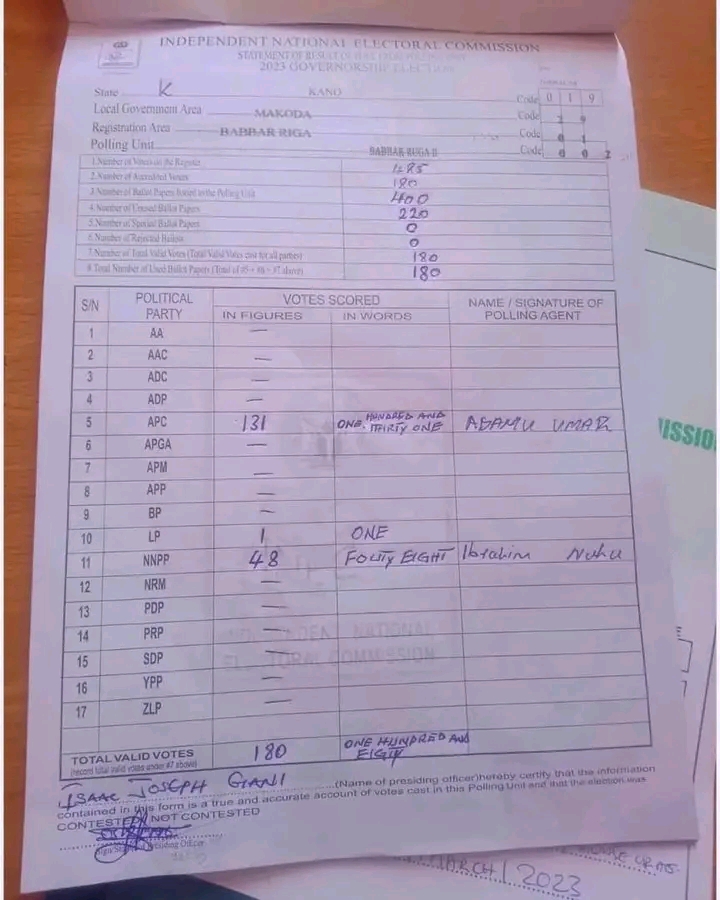 INDEPENDENT NATIONAL ELECTORAL COMMISSION
STATEMENT OF RESULT OF POLL FROM POLLING UNIT
2023 GOVERNORSHIP ELECTION
State K KANO Code 0 1 9
Local Government Area MAKODA Code 2 9
Registration Area BABBAR RIGA Code 0 1
Polling Unit BABBAR RUGA II Code 0 0 2
1.Number of Voters on the Register 485
2.Number of Accredited Voters 180
3.Number of Ballot Papers Issued to the Polling Unit 400
4.Number of Unused Ballot Papers 220
5.Number of Spoiled Ballot Papers 0
6.Number of Rejected Ballots 0
7.Number of Total Valid Votes (Total Valid Votes cast for all parties) 180
8.Total Number of Used Ballot Papers (Total of #5 + #6 + #7 above) 180
S/N POLITICAL PARTY VOTES SCORED NAME / SIGNATURE OF POLLING AGENT
IN FIGURES IN WORDS
1 AA —
2 AAC —
3 ADC —
4 ADP —
5 APC 131 ONE HUNDRED AND THIRTY ONE ADAMU UMAR
6 APGA —
7 APM —
8 APP —
9 BP —
10 LP 1 ONE
11 NNPP 48 FOUTY EIGHT Ibrahim Nuhu
12 NRM —
13 PDP —
14 PRP —
15 SDP —
16 YPP —
17 ZLP —
INDEPENDENT NATIONAL
ELECTORAL COMMISSION
TOTAL VALID VOTES 180 ONE HUNDRED AND EIGTY
(record total valid votes under #7 above)
ISAAC JOSEPH GIANI (Name of presiding officer)hereby certify that the information
contained in this form is a true and accurate account of votes cast in this Polling Unit and that the election was
CONTESTED/ NOT CONTESTED
Presiding Officer
MISSIO
MARCH / 2023